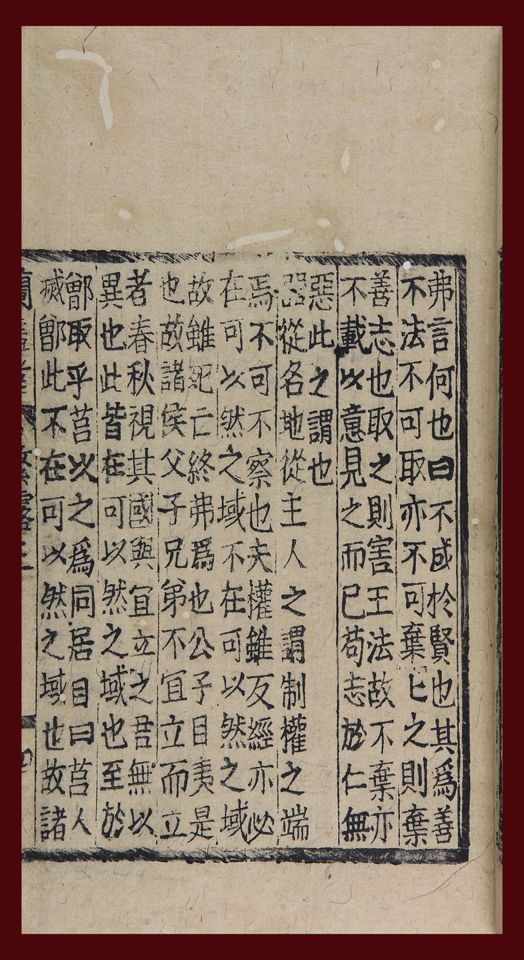 弗言何也曰不成於賢也其爲善
不法不可取亦不可棄匕之則棄
善志也取之則害王法故不棄亦
不載以意見之而已苟志於仁無
惡此之謂也
器從名地從主人之謂制權之端
焉不可不察也夫權雖反經亦必
在可以然之域不在可以然之域
故雖死亡終弗爲也公子目夷是
也故諸侯父子兄弟不冝立而立
者春秋視其國與冝立之君無以
異也此皆在可以然之域也至於
鄫取乎莒以之爲同居目曰莒人
滅鄫此不在可以然之域也故諸